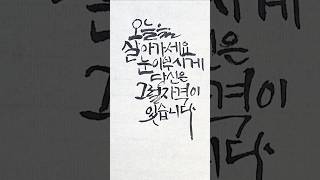 오늘을
살아가세요
눈이부시게
당신은
그럴자격이
있습니다.